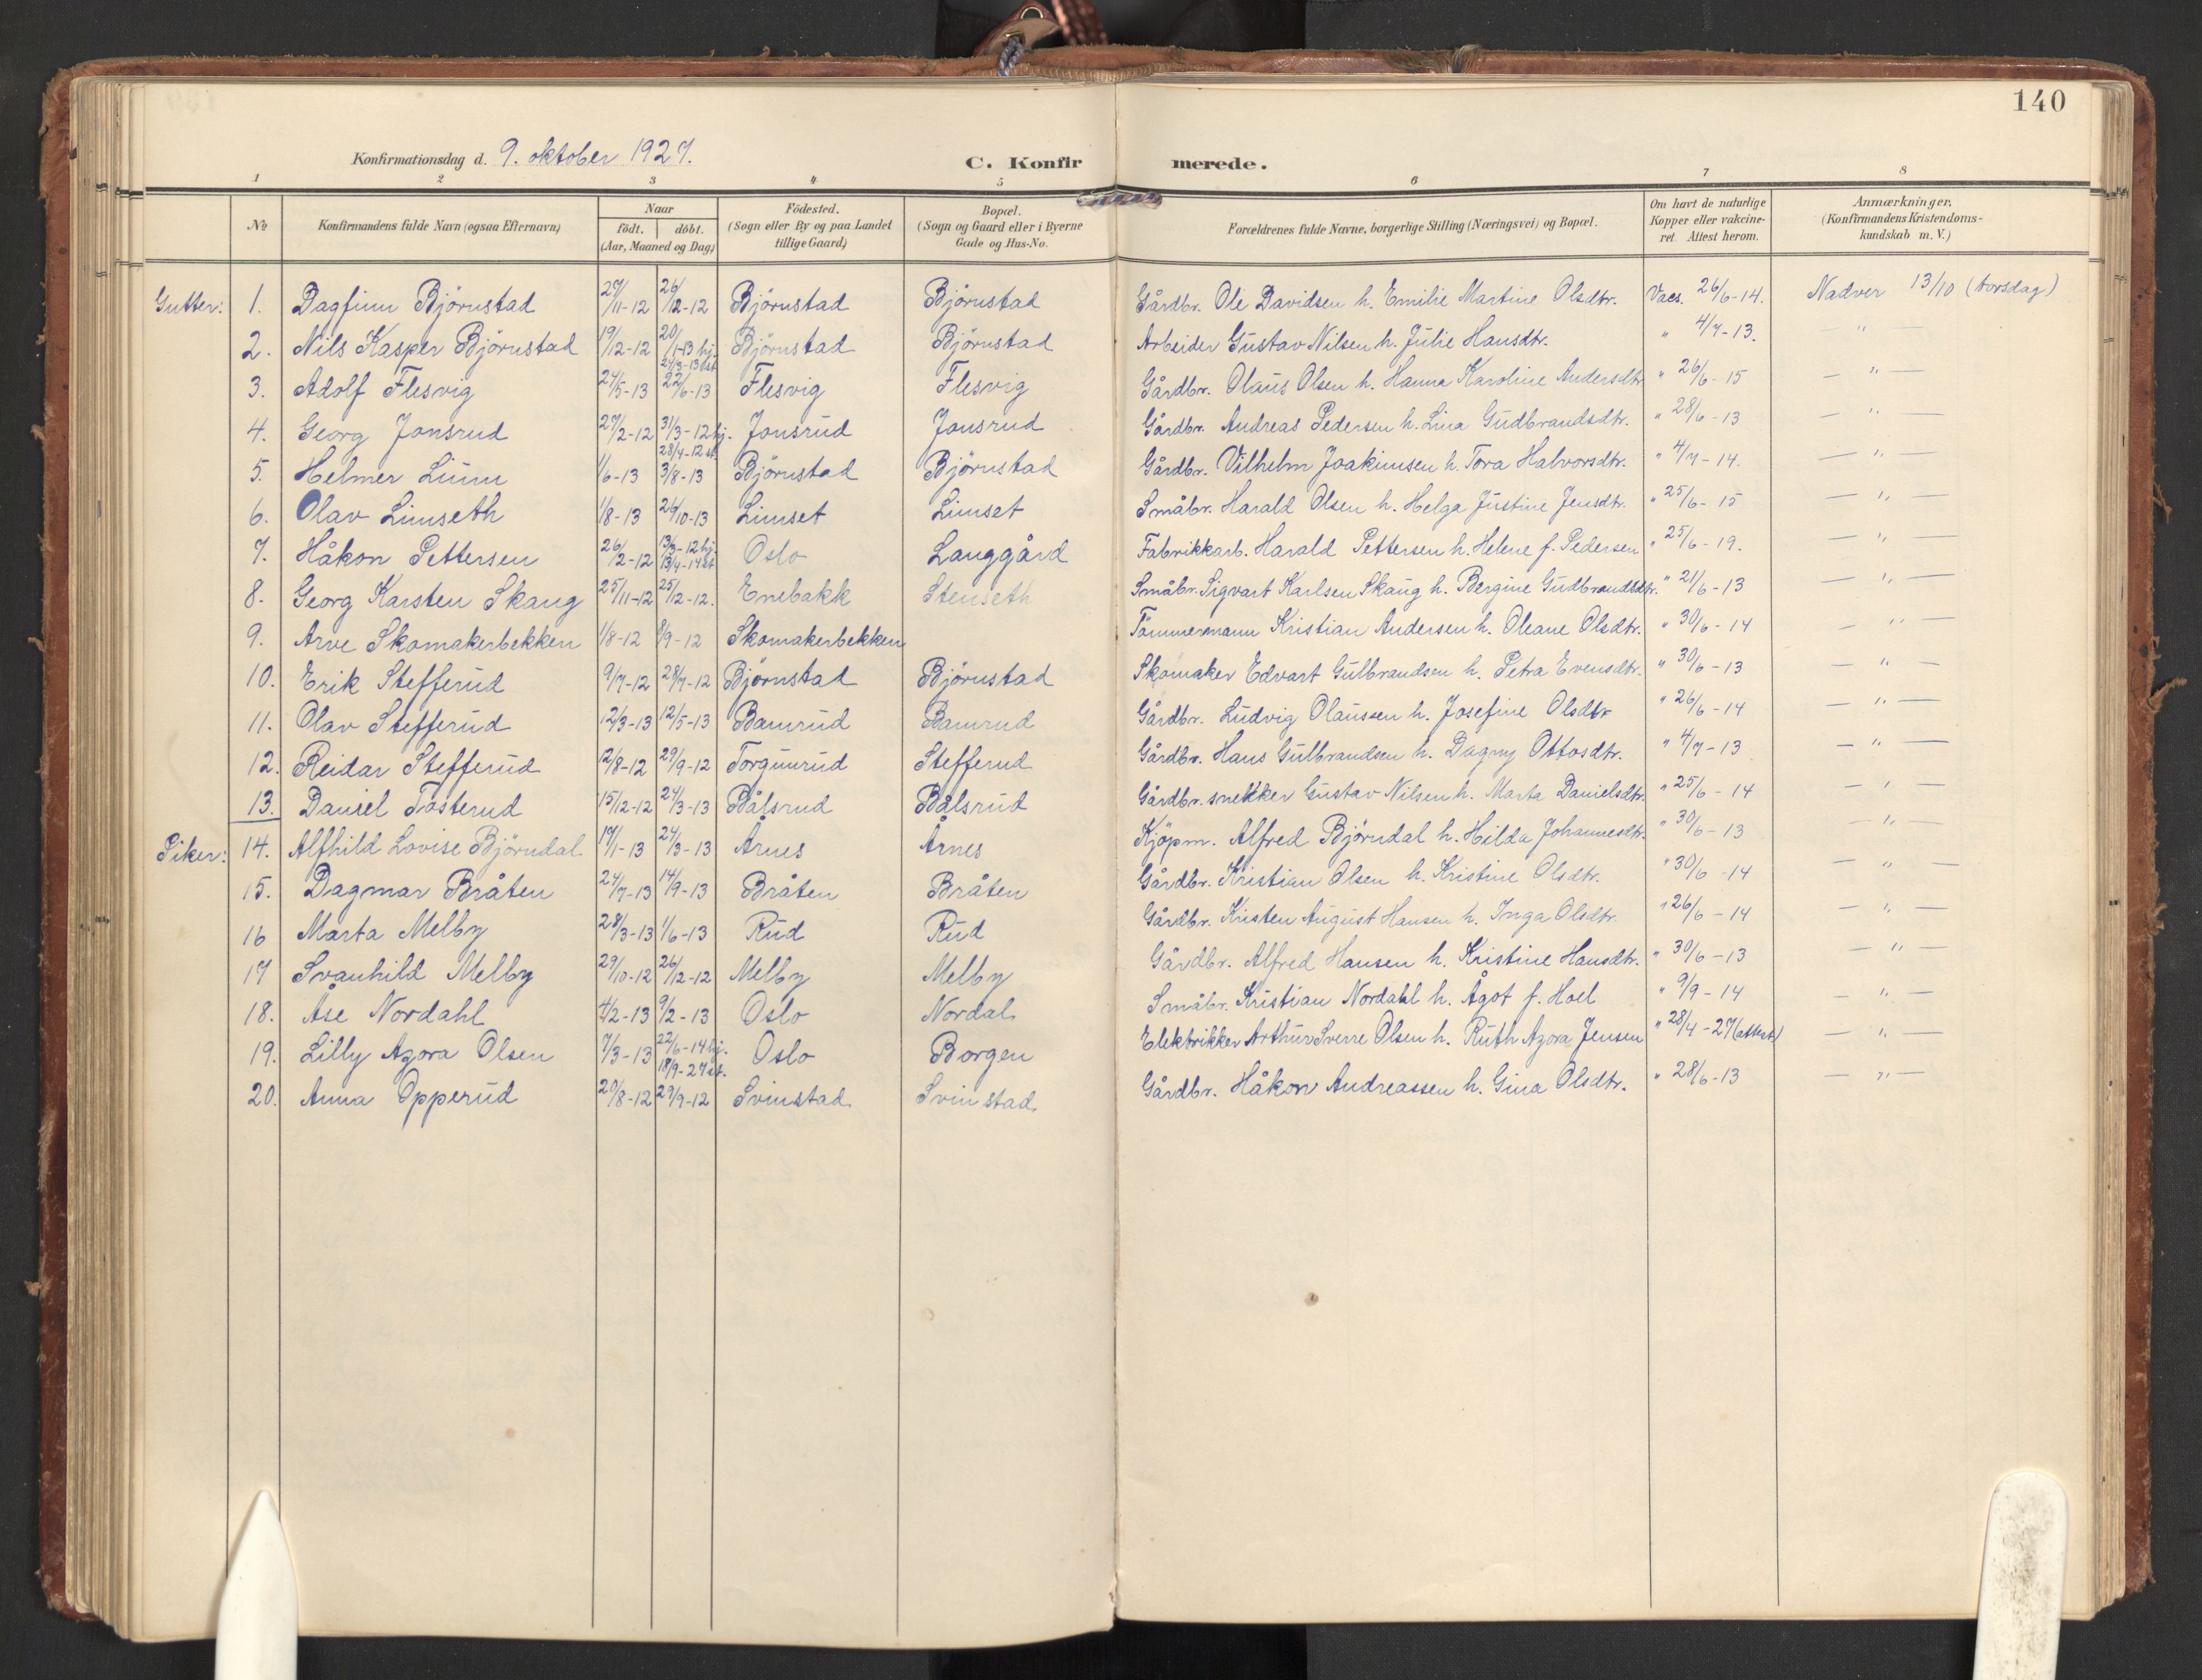 140
Konfirmationsdag d. 9. oktober 1927.
C. Konfirmerede.
1 2 3 4 5 6 7 8
No
Konfirmandens fulde Navn (ogsaa Efternavn)
Naar
födt. döbt.
(Aar, Maaned og Dag)
Födested.
(Sogn eller By og paa Landet
tillige Gaard)
Bopæl.
(Sogn og Gaard eller i Byerne
Gade og Hus-No.
Forældrenes fulde Navne, borgerlige Stilling (Næringsvei) og Bopæl.
Om havt de naturlige
Kopper eller vakcine-
ret. Attest herom.
Anmærkninger.
(Konfirmandens Kristendoms-
kundskab m. V.)
Gutter: 1. Dagfinn Björnstad 27/11-12 26/12-12 Björnstad Björnstad Gårdbr. Ole Davidsen h. Emilie Martine Olsdtr. Vacs. 26/6-14. Nadver 13/10 (torsdag)
2. Nils Kasper Björnstad 19/12-12 20/1-13 hj. 24/3-13 st. Björnstad Björnstad Arbeider Gustav Nilsen h. Julie Hansdtr. " 4/7-13. — " —
3. Adolf Flesvig 24/5-13 22/6-13 Flesvig Flesvig Gårdbr. Olaus Olsen h. Hanna Karoline Andersdtr " 26/6-15 — " —
4. Georg Jonsrud 27/2-12 31/3-12 hj. 28/4-12 st. Jonsrud Jonsrud Gårdbr. Andreas Pedersen h. Lina Gudbrandsdtr. " 28/6-13 — " —
5. Helmer Linn 1/6-13 3/8-13 Björnstad Björnstad Gårdbr. Vilhelm Joakimsen h. Tora Halvorsdtr. " 4/7-14. — " —
6. Olav Limseth 1/8-13 26/10-13 Limset Limset Småbr. Harald Olsen h. Helga Justine Jensdtr. " 25/6-15 — " —
7. Håkon Pettersen 26/2-12 13/3-12 hj. 13/4-14 st Oslo Langgård Fabrikkarb. Harald Pettersen h. Helene f. Pedersen " 25/6-19. — " —
8. Georg Karsten Skaug 25/11-12 25/12-12. Enebakk Stenseth Småbr. Sigvart Karlsen Skaug h. Bergine Gudbrandsdtr. " 21/6-13 — " —
9. Arve Skomakerbekken 1/8-12 8/9-12 Skomakerbekken Tömmermann Kristian Andersen h. Oleane Olsdtr. " 30/6-14 — " —
10. Erik Stefferud 9/7-12 28/7-12 Björnstad Björnstad Skomaker Edvart Gulbrandsen h. Petra Evensdtr. " 30/6-13 — " —
11. Olav Stefferud 12/3-13 12/5-13 Bamrud Bamrud Gårdbr. Ludvig Olaussen h. Josefine Olsdtr " 26/6-14 — " —
12. Reidar Stefferud 12/8-12 29/9-12 Torgunrud Stefferud Gårdbr. Hans Gulbrandsen h. Dagny Ottosdtr. " 4/7-13 — " —
13. Daniel Tosterud 15/12-12 24/3-13 Bålsrud Bålsrud Gårdbr. snekker Gustav Nilsen h. Marta Danielsdtr. " 25/6-14 — " —
Piker: 14. Alfhild Lovise Björndal 19/1-13 24/3-13 Årnes Årnes Kjöpm. Alfred Björndal h. Hilda Johannesdtr. " 30/6-13 — " —
15. Dagmar Bråten 24/7-13 14/9-13 Bråten Bråten Gårdbr. Kristian Olsen h. Kristine Olsdtr. " 30/6-14 — " —
16 Marta Melby 28/3-13 1/6-13 Rud Rud Gårdbr. Kristen August Hansen h. Inga Olsdtr. " 26/6-14 — " —
17 Svanhild Melby 29/10-12 26/12-12 Melby Melby Gårdbr. Alfred Hansen h. Kristine Hansdtr. " 30/6-13 — " —
18. Åse Nordahl 4/2-13 9/2-13 Oslo Nordal Småbr. Kristian Nordahl h. Ågot f. Hoel " 9/9-14 — " —
19. Lilly Azora Olsen 7/3-13 22/6-14 hj. 18/9-27 st. Oslo Borgen Elektrikker Arthur Sverre Olsen h. Ruth Azora Jensen " 28/4-27 (attest) — " —
20. Anna Opperud 20/8-12 29/9-12 Svinstad Svinstad Gårdbr. Håkon Andreassen h. Gina Olsdtr. " 28/6-13 — " —